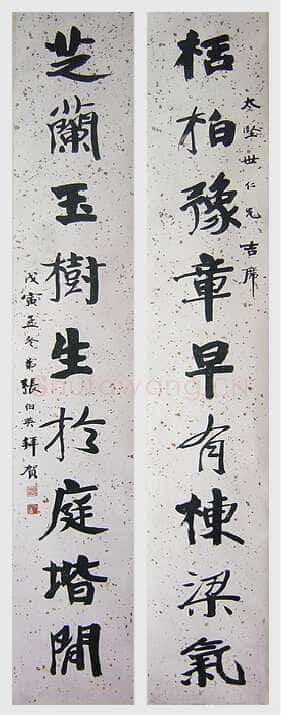 太世仁兄吉席
栝柏豫章早有棟梁氣
芝蘭玉樹生於庭堦間
戊寅孟冬弟張伯英拜賀